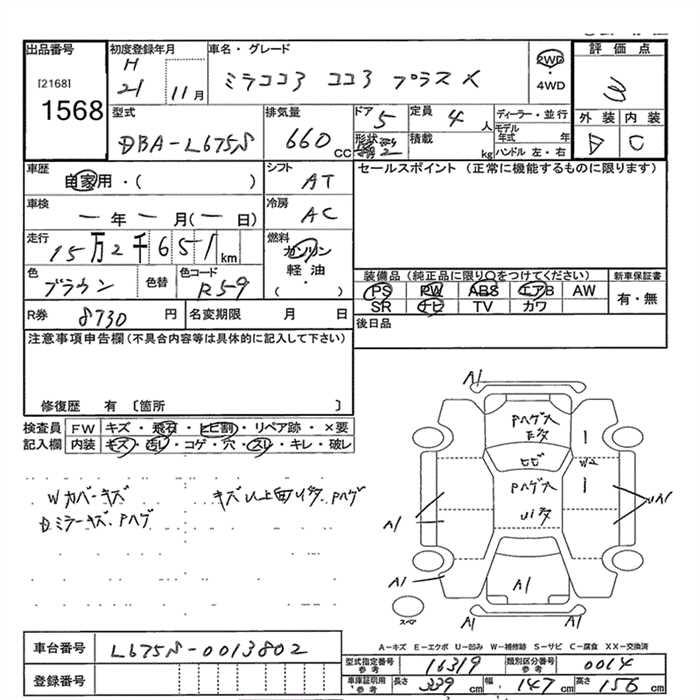 出品番号
[2168]
1568
初度登録年月
H
21 11月
車名・グレード
ミラココア ココア プラスX
2WD
・
4WD
評価点
3
外装 内装
D C
型式
DBA-L675S
排気量
660 CC
ドア
5
形状
定員
4 人
積載
kg
ディーラー・並行
モデル年式 年
ハンドル 左・右
車歴
自家用・( )
シフト
AT
セールスポイント (正常に機能するものに限ります)
車検
ー年ー月(ー日)
冷房
AC
走行
15万2千651km
燃料
ガソリン
軽油
・
( )
色
ブラウン
色替
色コード
R59
装備品 (純正品に限り〇をつけてください)
新車保証書
PS PW ABS エアB AW
SR ナビ TV カワ
有・無
R券 8730 円
名変期限 月 日
後日品
注意事項申告欄 (不具合内容等は具体的に記入して下さい)
修復歴 有 〔箇所 〕
検査員
記入欄
FW キズ・飛石・ヒビ割・リペア跡・×要
内装 キズ・汚レ・コゲ・穴・スレ・キレ・破レ
Wカバーキズ
Dミラーキズ、Pハゲ
Pハゲ
A1
Pハゲ大
ヒビ
W2
Pハゲ大
A1
A1
A1
A1
スペア
A-キズ E-エクボ U-凹み W-補修跡 S-サビ C-腐食 XX-交換済
車台番号 L675S-0013802
登録番号
型式指定番号 参考 16319
類別区分番号 参考 0014
車庫証明用 参考 長さ 339 cm 幅 147 cm 高さ 156 cm